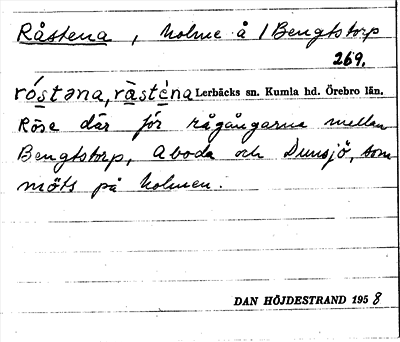 Råstena, holme å / Bengtstorp
269.
róstəna, råsténa Lerbäcks sn. Kumla hd. Örebro län.
Röse där för rågångarna mellan
Bengtstorp, Aboda och Dunsjö, som
möts på holmen.
DAN HÖJDESTRAND 1958